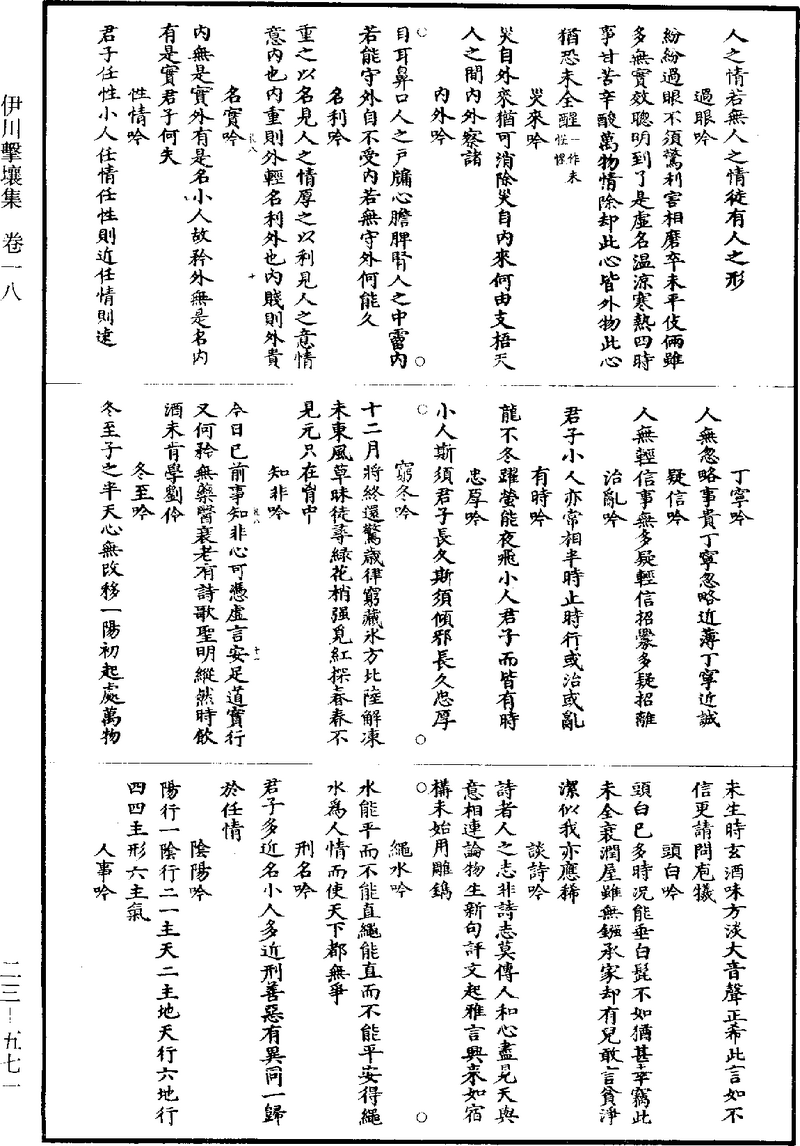 伊川擊壤集 卷一八
二三—五七一
人之情若無人之情徒有人之形
過眼吟
紛紛過眼不須驚利害相磨卒未平伎倆雖
多無實效聰明到了是虛名温涼寒熱四時
事甘苦辛酸萬物情除却此心皆外物此心
猶恐未全醒一作未惺惺
災來吟
災自外來猶可消除災自内來何由支梧天
人之間内外察諸
内外吟
目耳鼻口人之户牖心膽脾腎人之中霤内
若能守外自不受内若無守外何能久
名利吟
重之以名見人之情厚之以利見人之意情
意内也内重則外輕名利外也内賤則外貴
名實吟
内無是實外有是名小人故矜外無是名内
有是實君子何失
性情吟
君子任性小人任情任性則近任情則逺
丁寧吟
人無忽略事貴丁寧忽略近薄丁寧近誠
疑信吟
人無輕信事無多疑輕信招釁多疑招離
治亂吟
君子小人亦常相半時止時行或治或亂
有時吟
龍不冬躍螢能夜飛小人君子而皆有時
忠厚吟
小人斯須君子長久斯須傾邪長久忠厚
窮冬吟
十二月將終還驚歳律窮藏氷方北陸解凍
未東風草昧徒尋緑花梢强覓紅探春春不
見元只在胷中
知非吟
今日已前事知非心可憑虛言安足道實行
又何矜無藥醫衰老有詩歌聖明縱然時飲
酒未肯學劉伶
冬至吟
冬至子之半天心無改移一陽初起處萬物
未生時玄酒味方淡大音聲正希此言如不
信更請問庖犧
頭白吟
頭白已多時況能垂白髭不如猶甚幸竊此
未全衰潤屋雖無鏹承家却有兒敢言貧浄
潔似我亦應稀
談詩吟
詩者人之志非詩志莫傳人和心盡見天與
意相連論物生新句評文起雅言興來如宿
構未始用雕鐫
繩水吟
水能平而不能直繩能直而不能平安得繩
水爲人情而使天下都無爭
刑名吟
君子多近名小人多近刑善惡有異同一歸
於任情
陰陽吟
陽行一陰行二一主天二主地天行六地行
四四主形六主氣
人事吟